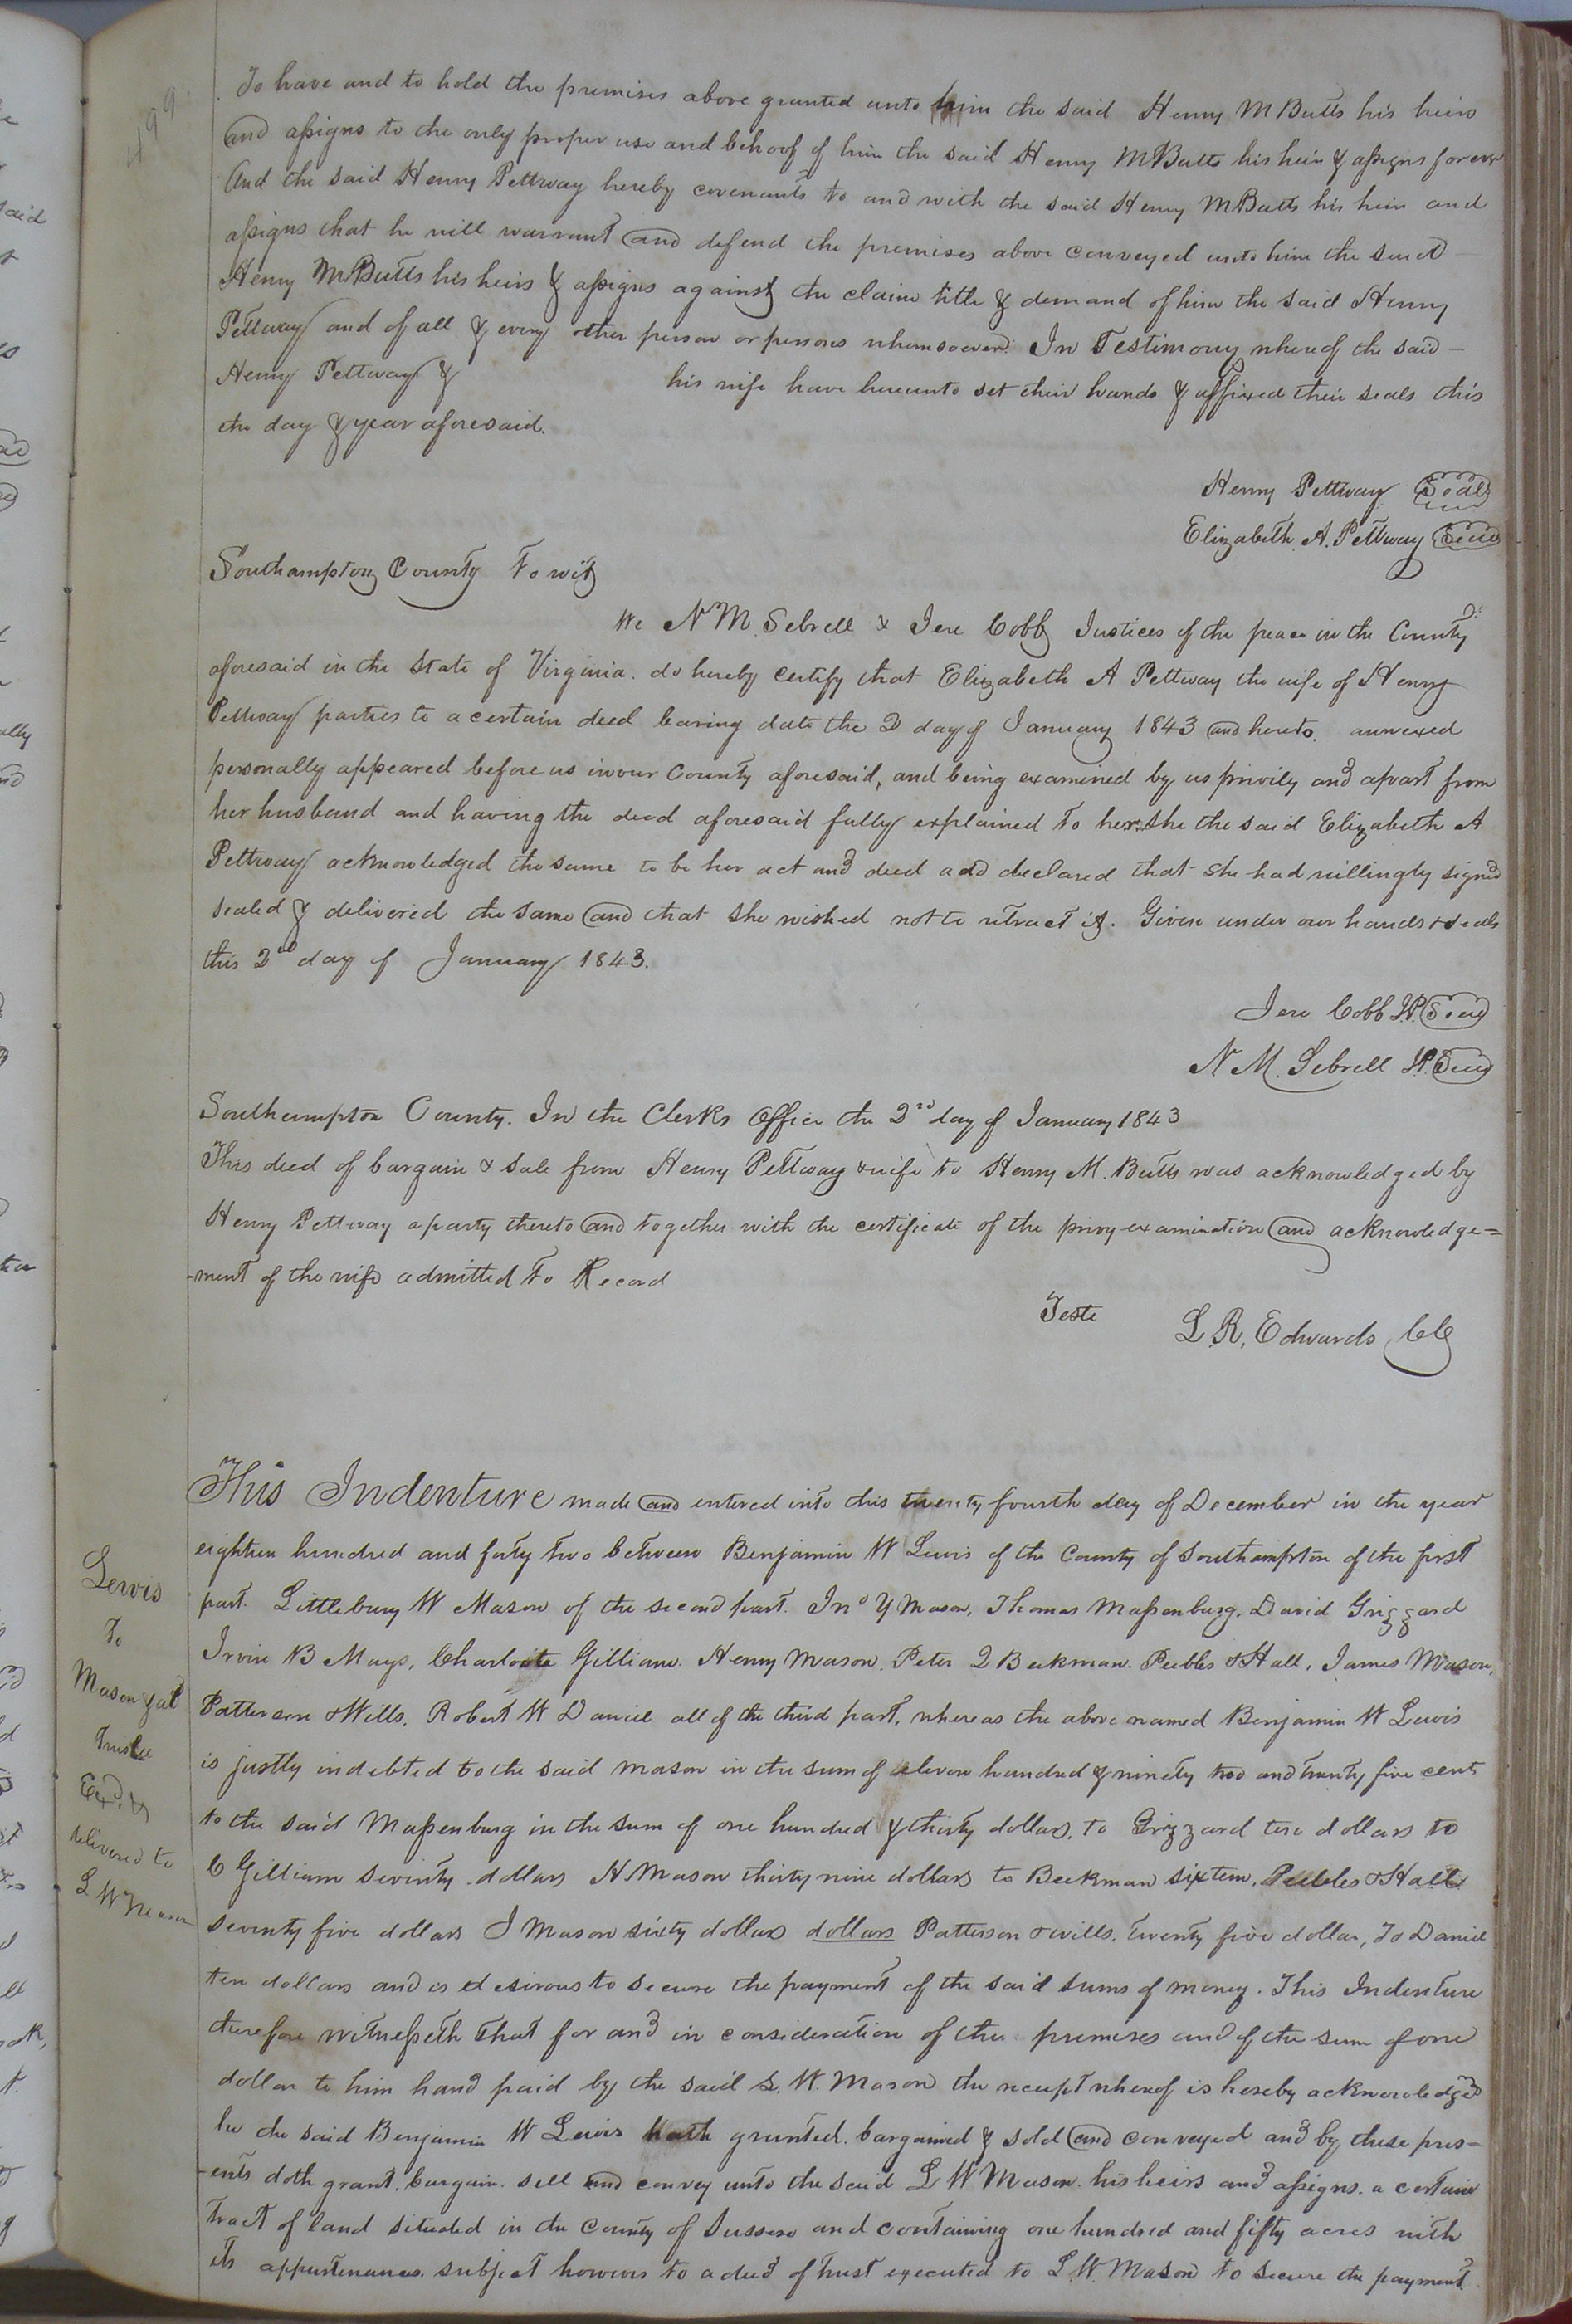 499
To have and to hold the premises above granted unto him the said Henry M Butts his heirs
and assigns to the only proper use and behoof of him the said Henry M Butts his heirs & assigns forever
And the said Henry Pettway hereby covenants to and with the said Henry M Butts his heirs and
assigns that he will warrant and defend the premises above conveyed unto him the said
Henry M Butts his heirs & assigns against the claim title & demand of him the said Henry
Pettway and of all & every other person or persons whomsoever. In Testimony whereof the said
Henry Pettway & his wife have hereunto set their hands & affixed their seals this
the day & year aforesaid.
Henry Pettway Seal
Elizabeth A. Pettway Seal
Southampton County To wit
We N M Sebrell & Jere Cobb Justices of the peace in the County
aforesaid in the State of Virginia. do hereby certify that Elizabeth A Pettway the wife of Henry
Pettway parties to a certain deed bearing date the 2 day of January 1843 and hereto. annexed
personally appeared before us in our County aforesaid, and being examined by us privily and apart from
her husband and having the deed aforesaid fully explained to her, she the said Elizabeth A
Pettway acknowledged the same to be her act and deed and declared that she had willingly signed
sealed & delivered the same and that she wished not to retract it. Given under our hands & seals
this 2nd day of January 1843.
Jere Cobb JP Seal
N M. Sebrell JP Seal
Southampton County. In the Clerks Office the 2nd day of January 1843
This deed of bargain & sale from Henry Pettway & wife to Henry M. Butts was acknowledged by
Henry Pettway a party thereto and together with the certificate of the privy examination and acknowledge=
-ment of the wife admitted to Record
Teste L. R. Edwards CC
This Indenture made and entered into this twenty fourth day of December in the year
eighteen hundred and forty two between Benjamin W Lewis of the County of Southampton of the first
part. Littlebury W Mason of the second part. Jno Y Mason, Thomas Massenburg, David Grizzard
Irvin B Mays, Charlotte Gilliam. Henry Mason. Peter Q Beekman. Peebles & Hall, James Mason,
Patterson & Wills, Robert W Daniel all of the third part, whereas the above named Benjamin W Lewis
is justly indebted to the said Mason in the sum of eleven hundred & ninety two and twenty five cents
to the said Massenburg in the sum of one hundred & thirty dollars, to Grizzard dollars to
C Gilliam seventy dollars H Mason thirty nine dollars to Beekman sixteen, Peebles & Hall
seventy five dollars J Mason sixty dollars dollars Patterson & wills. twenty five dollar, To Daniel
ten dollars and is desirous to secure the payment of the said sums of money. This Indenture
therefore witnesseth That for and in consideration of the premises and of the sum of one
dollar to him hand paid by the said L. W. Mason the receipt whereof is hereby acknowledged
he the said Benjamin W Lewis hath granted. bargained & sold and conveyed and by these pres-
-ents doth grant. bargain. sell and convey unto the said L W Mason. his heirs and assigns. a certain
tract of land situated in the County of Sussex and containing one hundred and fifty acres with
its appurtenances. subject however to a deed of trust executed to L. W. Mason to secure the payment
Lewis
To
Mason & al
Trustee
Exd. &
delivered to
L W Mason